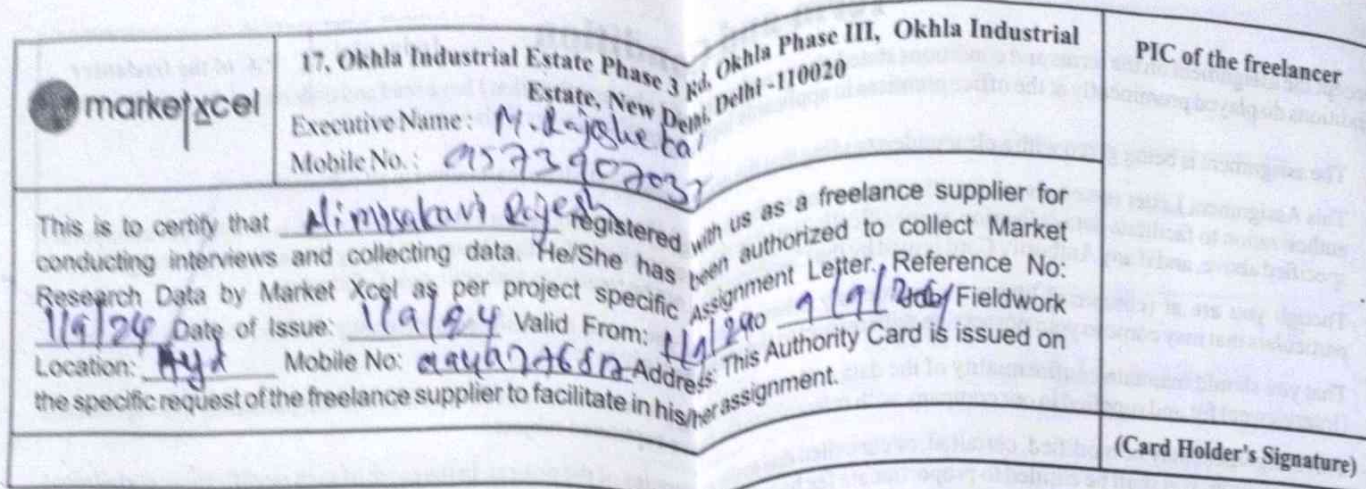 marketxcel
17, Okhla Industrial Estate Phase 3 Rd, Okhla Phase III, Okhla Industrial
Estate, New Delhi, Delhi -110020
Executive Name :
Mobile No. :
PIC of the freelancer
This is to certify that Rajesh registered with us as a freelance supplier for
conducting interviews and collecting data. He/She has been authorized to collect Market
Research Data by Market Xcel as per project specific Assignment Letter. Reference No:
1/9/24 Date of Issue: 1/9/24 Valid From: to 9/9/24 Job/ Fieldwork
Location: Hyd Mobile No: Address: This Authority Card is issued on
the specific request of the freelance supplier to facilitate in his/her assignment.
(Card Holder's Signature)